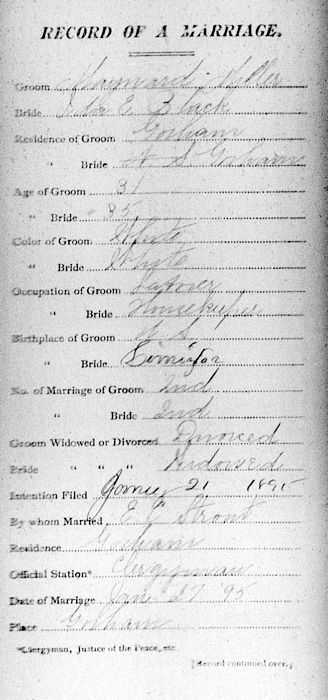 RECORD OF A MARRIAGE.
Groom Maynard Miller
Bride Ida E. Black
Residence of Groom Gorham
" Bride N S Gorham
Age of Groom 31
" Bride 35
Color of Groom Whyte
" Bride Whyte
Occupation of Groom
" Bride Housekeeper
Birthplace of Groom N. S.
" Bride
No. of Marriage of Groom 2nd
" Bride 2nd
Groom Widowed or Divorced Divorced
Bride " " " Widowed
Intention Filed 21 1895
By whom Married E C Strout
Residence Gorham
Official Station* Clergyman
Date of Marriage Jan 27 '95
Place Gorham
*Clergyman, Justice of the Peace, etc.
[Record continued over.]